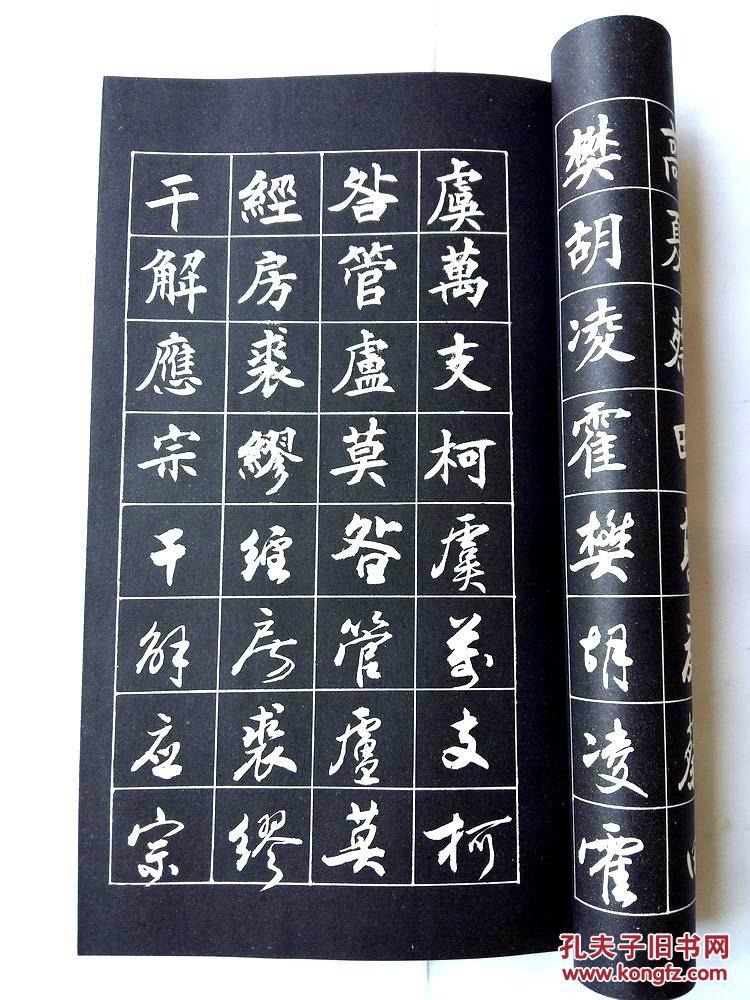 樊胡凌霍樊胡凌霍
虞萬支柯虞萬支柯
昝管盧莫昝管盧莫
經房裘繆經房裘繆
干解應宗干解应宗
孔夫子旧书网
www.kongfz.com